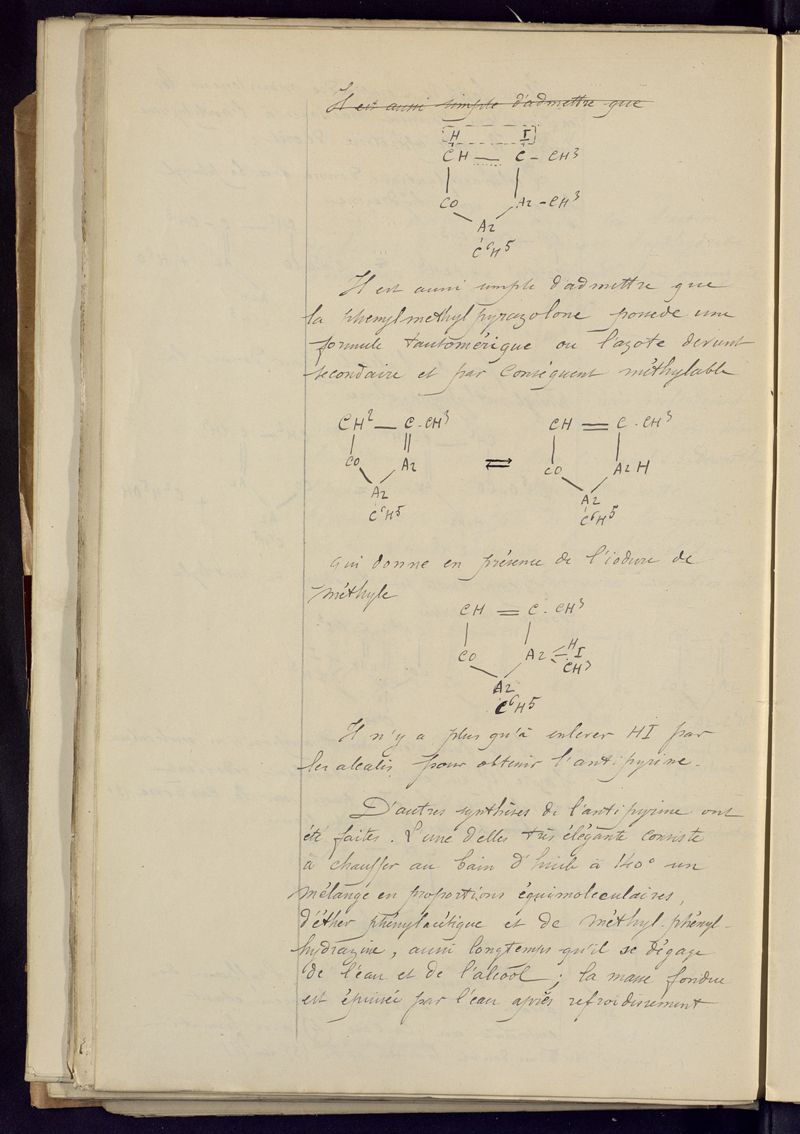 Il est aussi simple d'admettre que
H I
CH — C - CH³
CO Az - CH³
Az
C⁶H⁵
Il est aussi simple d'admettre que
la phenylmethylpyrazolone possede une
formule tautomérique ou l'azote devient
secondaire et par conséquent méthylable
CH² — C - CH³ CH = C - CH³
CO Az ⇌ CO AzH
Az Az
C⁶H⁵ C⁶H⁵
qui donne en présence de l'iodure de
méthyle
CH = C - CH³
H
CO Az I
CH³
Az
C⁶H⁵
Il n'y a plus qu'à enlever HI par
les alcalis pour obtenir l'antipyrine.
D'autres synthèses de l'antipyrine ont
été faites. L'une d'elles très élégante consiste
à chauffer au bain d'huile à 140° un
mélange en proportions équimoleculaires,
d'éther et de méthyl-phényl-
hydrazine, aussi longtemps qu'il se dégage
de l'eau et de l'alcool; la masse fondue
est épuisée par l'eau après refroidissement